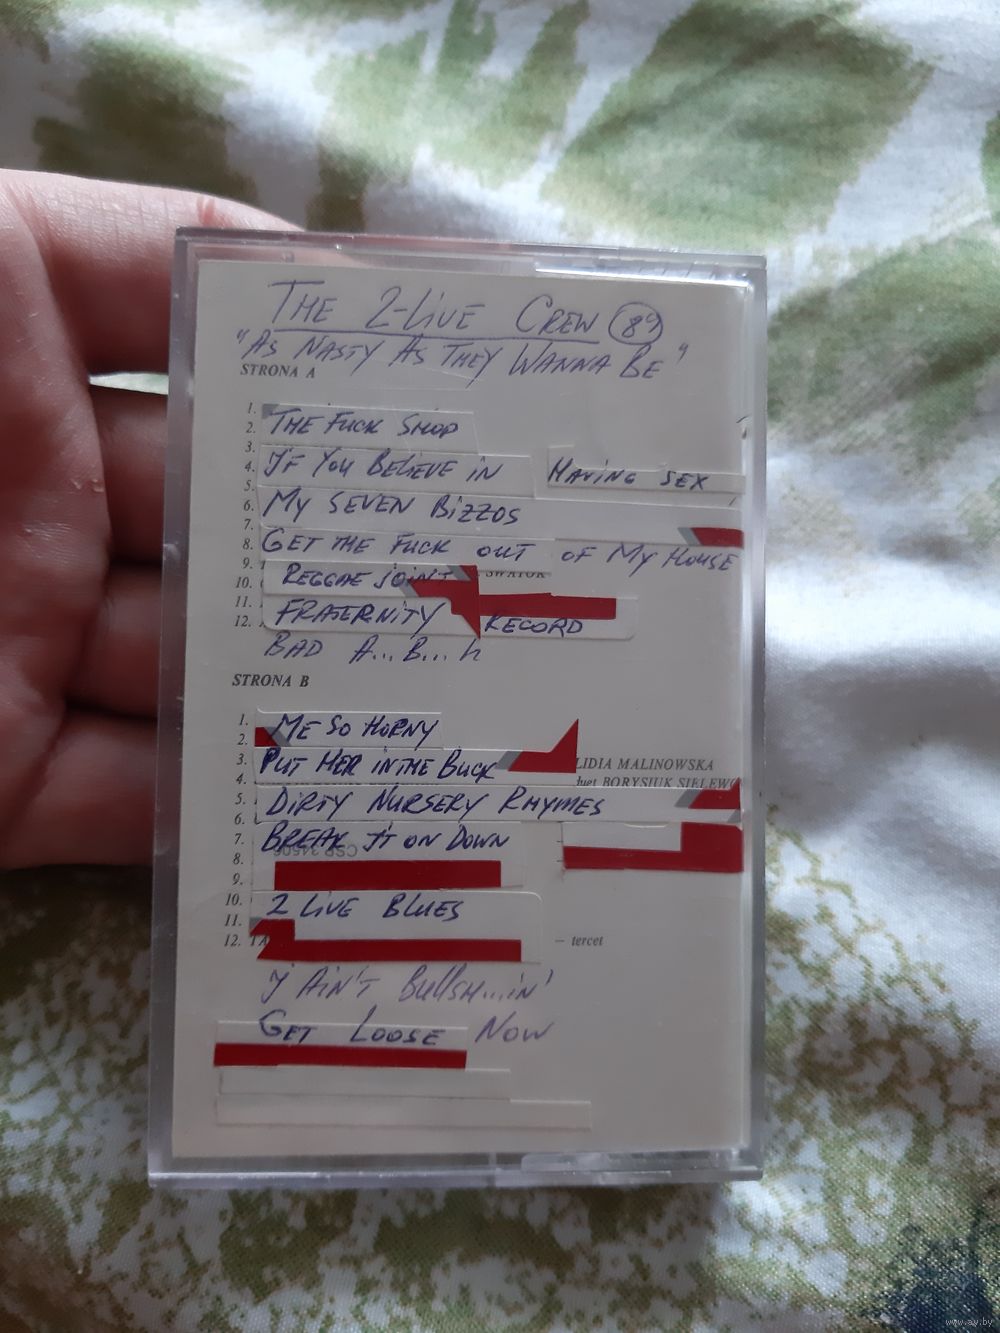 THE 2-LIVE CREW 89
"AS NASTY AS THEY WANNA BE"
STRONA A
1.
2. THE FUCK SHOP
3.
4. IF YOU BELIEVE IN HAVING SEX
5.
6. MY SEVEN BIZZOS
7.
8. GET THE FUCK OUT OF MY HOUSE
9. REGGAE JOINT
10.
11. FRATERNITY RECORD
12.
BAD A...B...h
STRONA B
1. ME SO HORNY
2.
3. PUT HER IN THE BUCK LIDIA MALINOWSKA
4. duet BORYSIUK SIELEWC
5. DIRTY NURSERY RHYMES
6.
7. BREAK IT ON DOWN
8.
9.
10. 2 LIVE BLUES
11.
12. – tercet
I AIN'T BULLSH...IN'
GET LOOSE NOW
www.ay.by